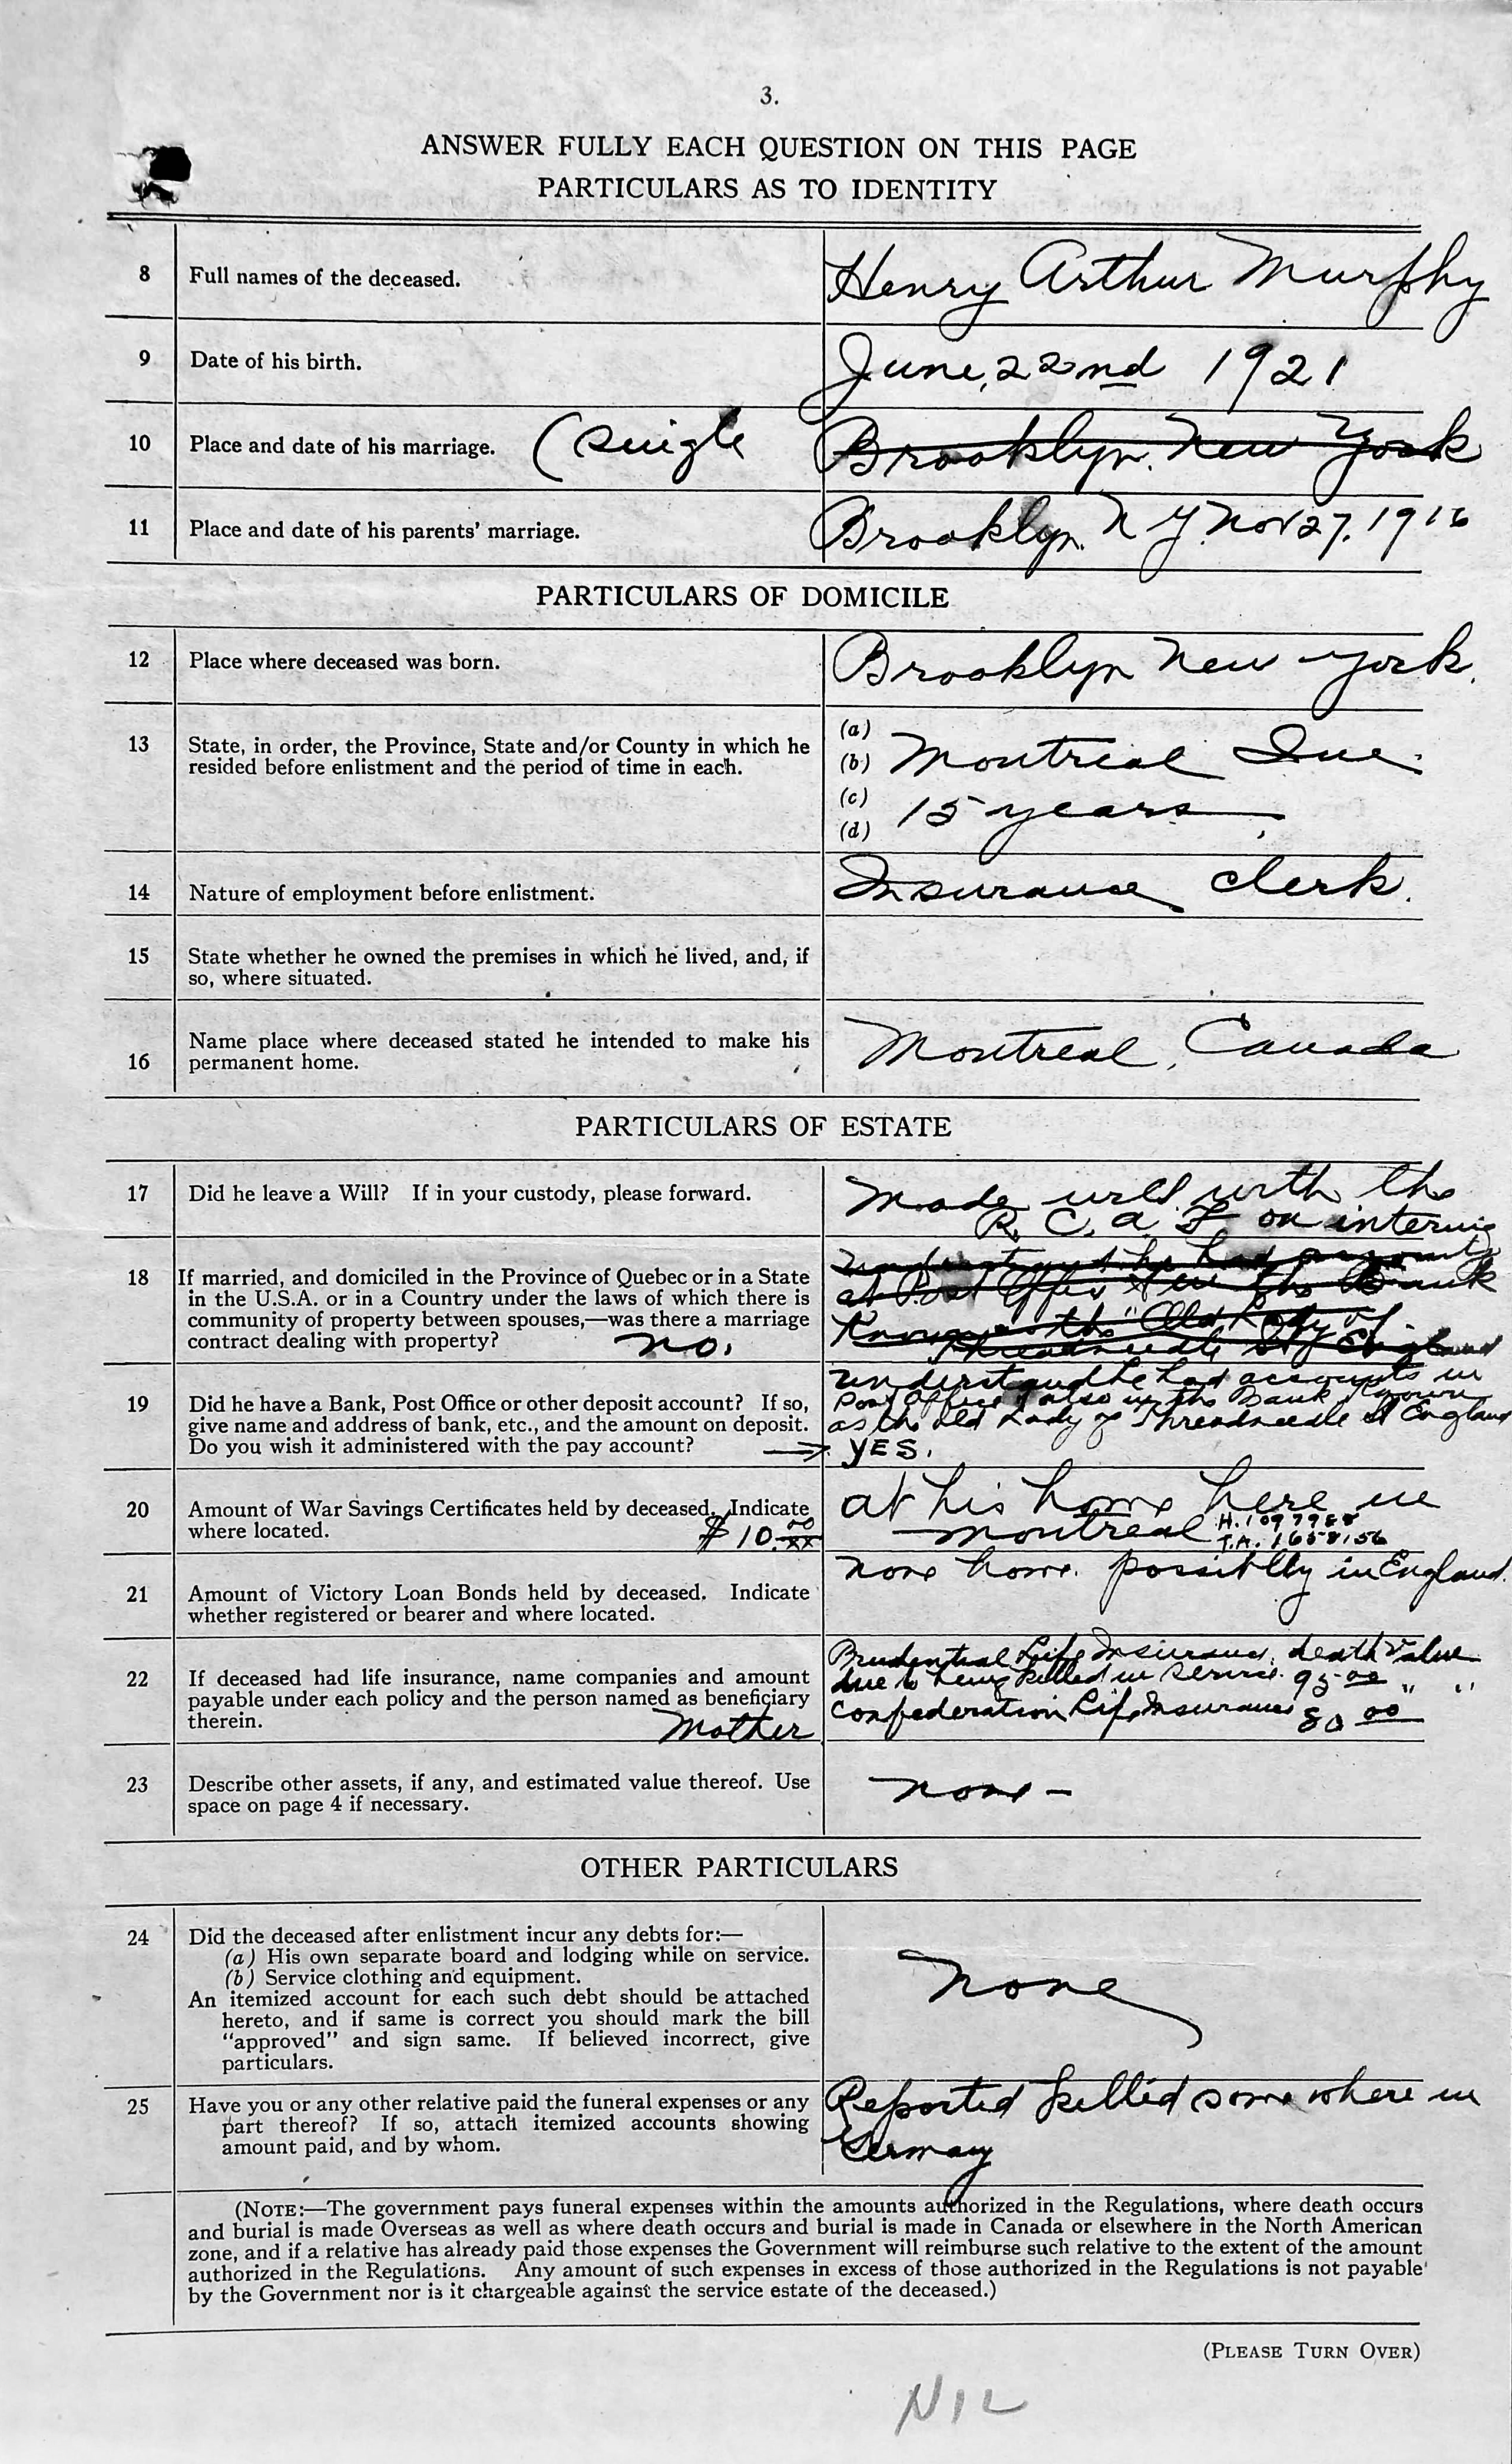 3.
ANSWER FULLY EACH QUESTION ON THIS PAGE
PARTICULARS AS TO IDENTITY
8 Full names of the deceased. Henry Arthur Murphy
9 Date of his birth. June, 22nd 1921
10 Place and date of his marriage. (single Brooklyn, New York
11 Place and date of his parents' marriage. Brooklyn. N Y. Nov 27, 1916
PARTICULARS OF DOMICILE
12 Place where deceased was born. Brooklyn New York.
13 State, in order, the Province, State and/or County in which he
resided before enlistment and the period of time in each.
(a)
(b) Montreal Que.
(c) 15 years
(d)
14 Nature of employment before enlistment. Insurance Clerk.
15 State whether he owned the premises in which he lived, and, if
so, where situated.
16 Name place where deceased stated he intended to make his
permanent home. Montreal, Canada
PARTICULARS OF ESTATE
17 Did he leave a Will? If in your custody, please forward. Made will with the
R. C. A. F on
18 If married, and domiciled in the Province of Quebec or in a State
in the U.S.A. or in a Country under the laws of which there is
community of property between spouses,—was there a marriage
contract dealing with property? no.
understand he had accounts
at Post Office & in the Bank
Known as the "Old Lady of
Threadneedle St England
19 Did he have a Bank, Post Office or other deposit account? If so,
give name and address of bank, etc., and the amount on deposit.
Do you wish it administered with the pay account? →
understand he had accounts in
Post Office & also in the Bank known
as the Old Lady of Threadneedle St England
YES.
20 Amount of War Savings Certificates held by deceased. Indicate
where located. $10.00/xx
at his home here in
Montreal H.1097988
T.A. 1658156
21 Amount of Victory Loan Bonds held by deceased. Indicate
whether registered or bearer and where located.
none home. possiblly in England.
22 If deceased had life insurance, name companies and amount
payable under each policy and the person named as beneficiary
therein. Mother
Prudential Life Insurance, death value
due to being killed in service. 95.00 " "
Confederation Life Insurance 80 00
23 Describe other assets, if any, and estimated value thereof. Use
space on page 4 if necessary. none -
OTHER PARTICULARS
24 Did the deceased after enlistment incur any debts for:—
(a) His own separate board and lodging while on service.
(b) Service clothing and equipment.
An itemized account for each such debt should be attached
hereto, and if same is correct you should mark the bill
"approved" and sign same. If believed incorrect, give
particulars.
none
25 Have you or any other relative paid the funeral expenses or any
part thereof? If so, attach itemized accounts showing
amount paid, and by whom.
Reported killed some where in
Germany
(NOTE:—The government pays funeral expenses within the amounts authorized in the Regulations, where death occurs
and burial is made Overseas as well as where death occurs and burial is made in Canada or elsewhere in the North American
zone, and if a relative has already paid those expenses the Government will reimburse such relative to the extent of the amount
authorized in the Regulations. Any amount of such expenses in excess of those authorized in the Regulations is not payable
by the Government nor is it chargeable against the service estate of the deceased.)
(PLEASE TURN OVER)
NIL